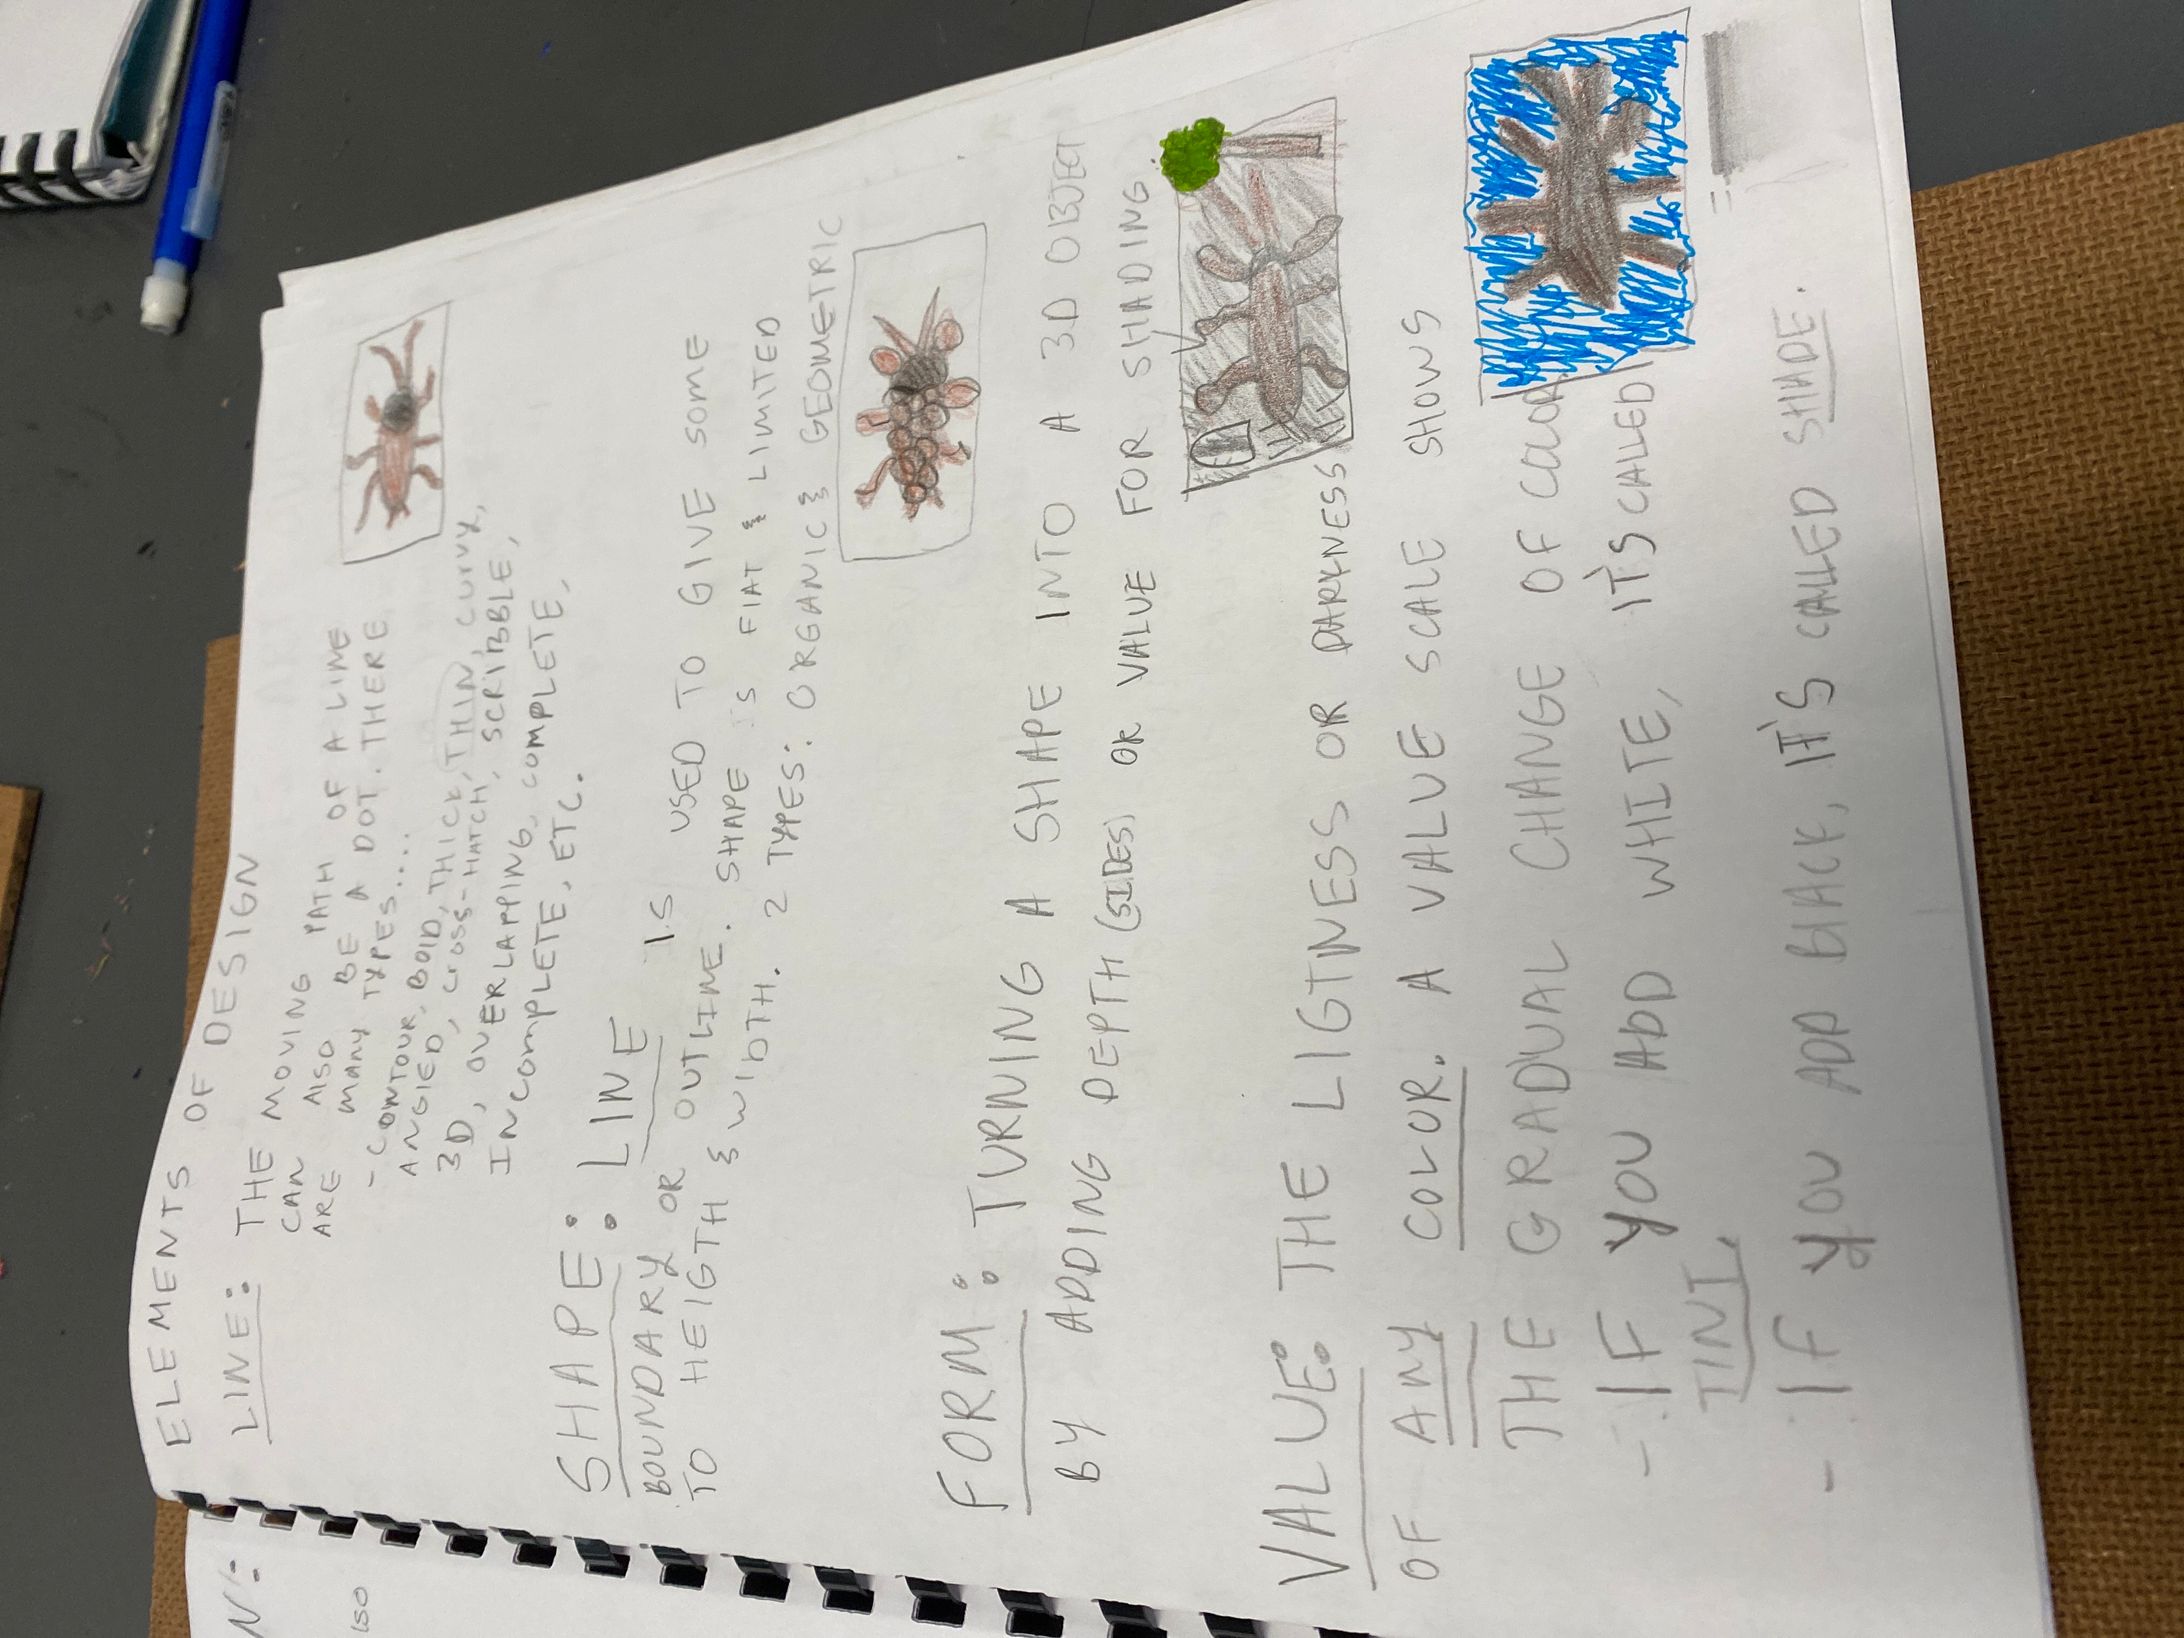 ELEMENTS OF DESIGN
LINE: THE MOVING PATH OF A LINE
CAN AlSO BE A DOT. THERE
ARE MANY TYPES....
- CONTOUR, BOlD, THICK, THIN, CURVY,
ANGlED, CROSS-HATCH, SCRIBBLE,
3D, OVERLAPPING, COMPLETE,
INCOMPLETE, ETC.
SHAPE: LINE IS USED TO GIVE SOME
BOUNDARY OR OUTLINE. SHAPE IS FlAT & LIMITED
TO HEIGTH & WIDTH. 2 TYPES: ORGANIC & GEOMETRIC
FORM: TURNING A SHAPE INTO A 3D OBJECT
BY ADDING DEPTH (SIDES) OR VALUE FOR SHADING
VALUE: THE LIGTNESS OR DARKNESS
OF ANY COLOR. A VALUE SCALE SHOWS
THE GRADUAL CHANGE OF COLOR
- IF YOU ADD WHITE, IT'S CALLED
TINT.
- IF YOU ADD BlACK, IT'S CALLED SHADE.
N:
lSO